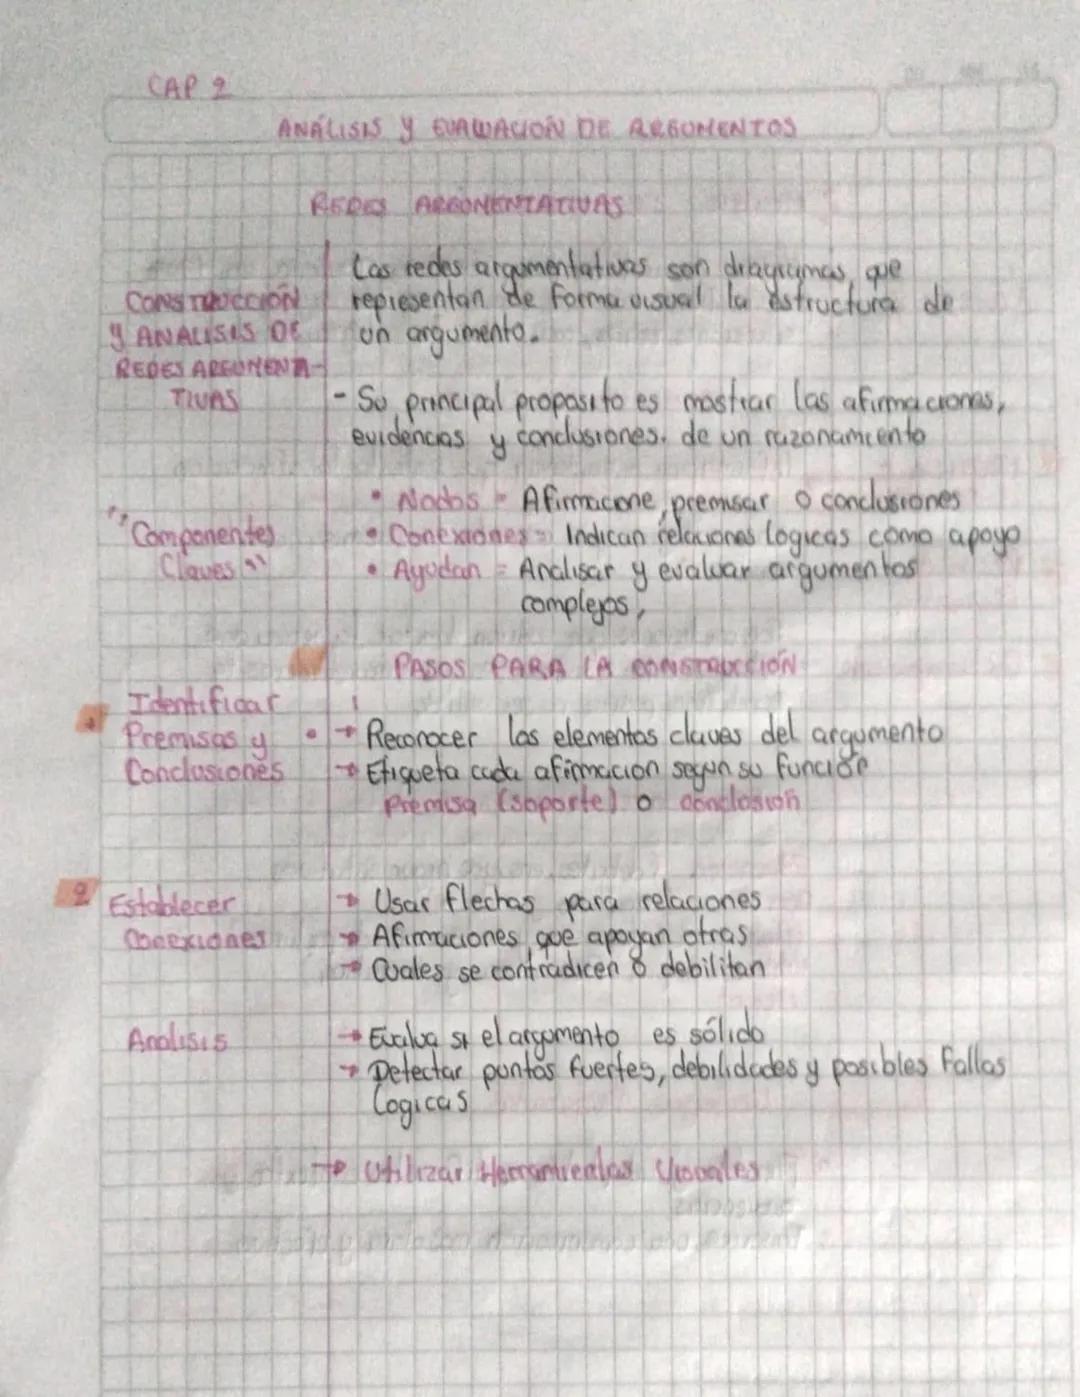 CAP 2
ANÁLISIS Y EVALUACIÓN DE ARGUMENTOS
REDES ARGUMENTATIVAS
CONSTRUCCIÓN
Y ANALISIS DE
REDES ARGUMENTA-
TIVAS
Las redes argumentativas son diagramas que
representan de forma visual la estructura de
un argumento.
- Su principal proposito es mostrar las afirmaciones,
evidencias y conclusiones. de un razonamiento
"Componentes
Claves"
• Nodos = Afirmacione, premisar o conclusiones
• Conexiones = Indican relaciones logicas como apoyo
• Ayudan = Analisar y evaluar argumentos
complejos,
PASOS PARA LA CONSTRUCCIÓN
1 Identificar
Premisas y
Conclusiones
• → Reconocer los elementos claves del argumento
→ Etiqueta cada afirmacion segun su función
Premisa (soporte) o conclusión
2 Establecer
Conexiones
→ Usar flechas para relaciones
→ Afirmaciones que apoyan otras
→ Cuales se contradicen o debilitan
Analisis
→ Evalua si el argumento es sólido
→ Detectar puntos fuertes, debilidades y posibles fallas
logicas
→ Utilizar Herramientas Visuales